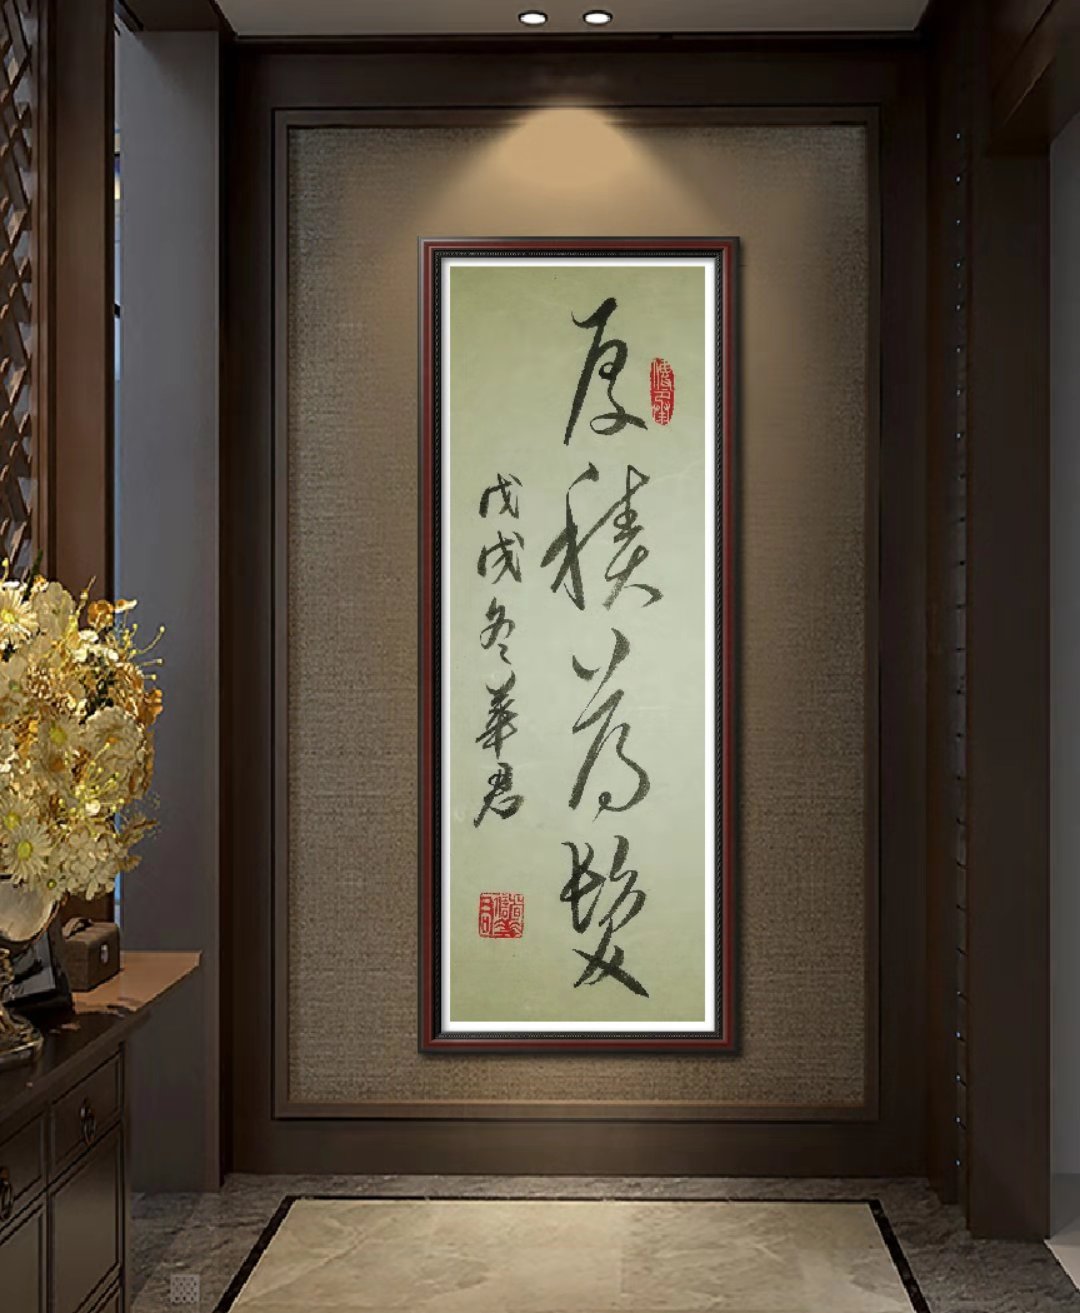 厚積薄發
戊戌冬華君